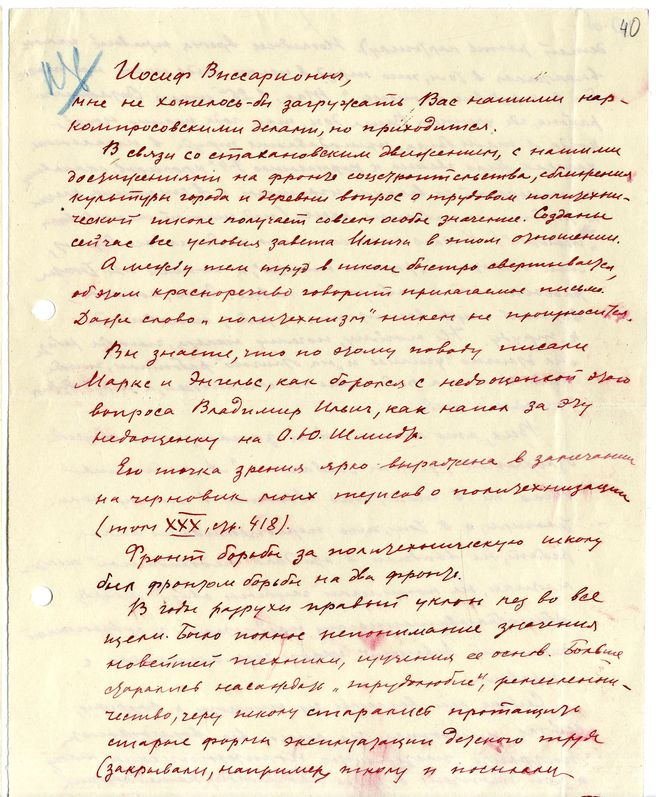 40
Иосиф Виссарионыч,
мне не хотелось-бы загружать Вас нашими нар-
компросовскими делами, но приходится.
В связи со стахановским движением, с нашими
достижениями на фронте соцстроительства, сближения
культуры города и деревни вопрос о трудовой политехни-
ческой школе получает совсем особое значение. Созданы
сейчас все условия завета Ильича в этом отношении.
А между тем труд в школе быстро свертывается,
об этом красноречиво говорит прилагаемое письмо.
Даже слово "политехнизм" никем не произносится.
Вы знаете, что по этому поводу писали
Маркс и Энгельс, как боролся с недооценкой этого
вопроса Владимир Ильич, как напал за эту
недооценку на О.Ю. Шмидта.
Его точка зрения ярко выражена в замечании
на черновик моих тезисов о политехнизации
(том XXX, стр. 418).
Фронт борьбы за политехническую школу
был фронтом борьбы на два фронта.
В годы разрухи правый уклон лез во все
щели. Было полное непонимание значения
новейшей техники, изучения ее основ. Больше
старались насаждать "трудолюбие", ремесленни-
чество, через школу старались протащить
старые формы эксплуатации детского труда
(закрывали, например, школу и посылали